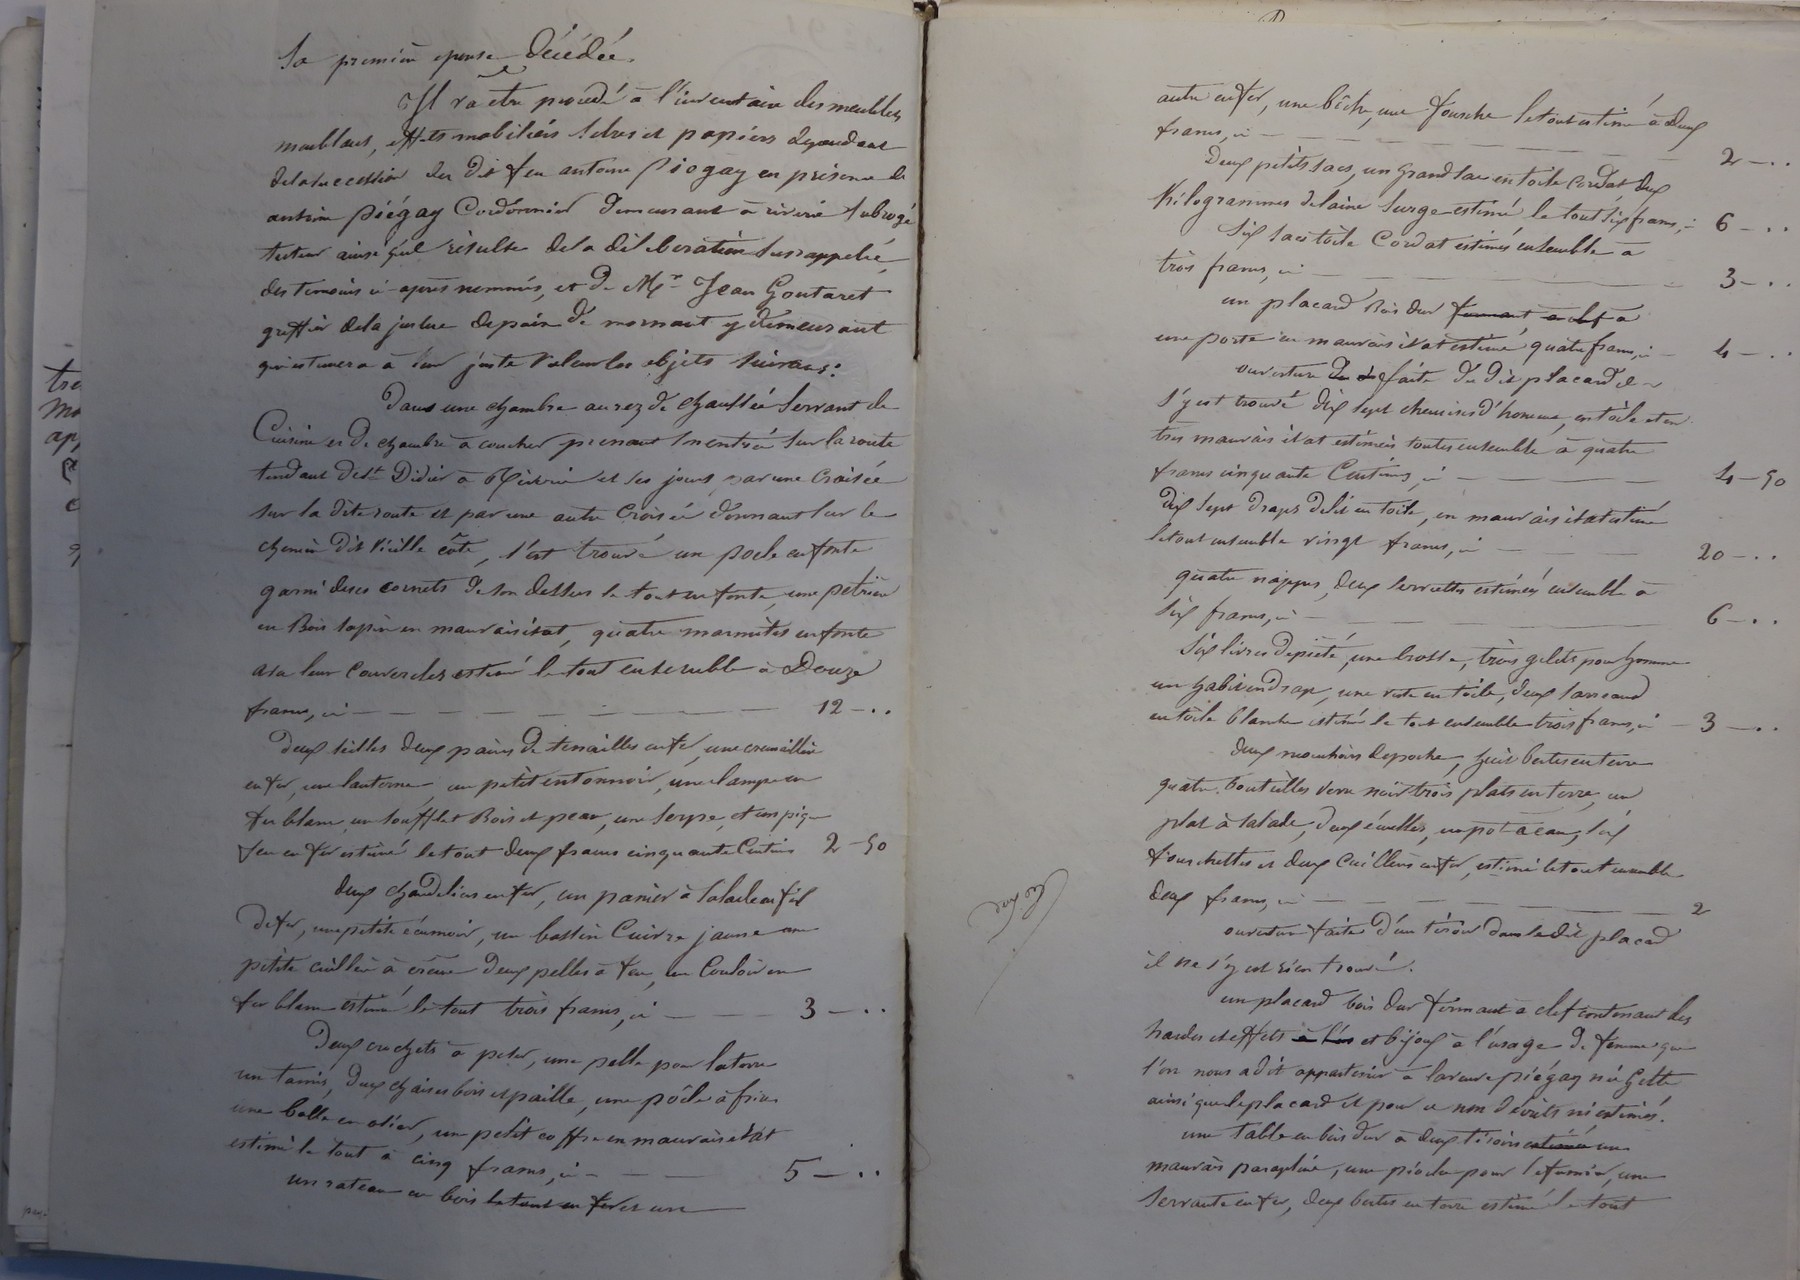 Sa première epouse Décédée.
Il va être procédé à l'inventaire des meubles
meublant, effets mobiliers titres et papiers dependant
de la succession du dit feu antoine Piégay en présence de
antoine Piégay Cordonnier demeurant à riverie subrogé
tuteur ainsi qu'il résulte de la délibération susrappelée,
des temoins ci-après nommés, et de Mr Jean Goutaret
greffier de la justice de paix de mornant y demeurant
qui estimera à leur juste valeur les objets suivans:
Dans une chambre au rez de chaussée servant de
Cuisine et de chambre à coucher prenant son entrée sur la route
tendant de St Didier à Riverie et ses jours par une croisée
sur la dite route et par une autre croisée donnant sur le
chemin dit Vieille côte, s'est trouvé un poele en fonte
garni de ses cornets de son dessus le tout en fonte, une pétrière
en Bois sapin en mauvais état, quatre marmites en fonte
avec leur couvercles estimé le tout ensemble à Douze
francs, ci 12 - ..
Deux seilles deux paires de tenailles en fer, une cremaillère
en fer, une lanterne, un petit entonnoir, une lampe en
fer blanc, un soufflet Bois et peau, une serpe, et un pique
feu en fer estimé le tout deux francs cinquante Centimes 2 - 50
deux chandeliers en fer, un panier à salade en fil
de fer, une petite écumoir, un bassin Cuivre jaune une
petite cuillère à crême deux pelles à feu, un Couloir en
fer blanc estimé le tout trois francs, ci 3 - ..
Deux crochets à peser, une pelle pour la terre
un tamis, deux chaises bois et paille, une pôele à frire
une balle en osier, un petit coffre en mauvais état
estimé le tout à cinq francs, ci 5 - ..
un rateau en bois le tout en fer et un
tre
ap
autre en fer, une bêche, une fourche le tout estimé à deux
francs, ci 2 - ..
Deux petits sacs, un grand sac en toile Cordat dix
Kilogrammes de laine surge estimé le tout six francs, ci 6 - ..
Six sacs toile Cordat estimés ensemble à
trois francs, ci 3 - ..
un placard Bois dur fermant à clef à
une porte en mauvais état estimé quatre francs, ci 4 - ..
ouverture faite du dit placard il
s'y est trouvé dix sept chemises d'homme, en toile et en
très mauvais état estimées toutes ensemble à quatre
francs cinquante Centimes, ci 4 - 50
Dix sept draps de lit en toile, en mauvais état estimé
le tout ensemble vingt francs, ci 20 - ..
quatre nappes, deux serviettes estimées ensemble à
six francs, ci 6 - ..
Six livres de piété, une brosse, trois gilets pour homme
un habit en drap, une veste en toile, deux sarreaud
en toile blanche estimé le tout ensemble trois francs, ci 3 - ..
deux mouchoirs de poche, huit bertes en terre
quatre bouteilles verre noir trois plats en terre, un
plat à salade, deux écuelles, un pot à eau, six
fourchettes et deux Cuillers en fer, estimé le tout ensemble
deux francs, ci 2
ouverture faite d'un tiroir dans le dit placard
il ne s'y est rien trouvé.
un placard bois dur fermant à clef contenant des
hardes et effets et bijoux à l'usage de femme que
l'on nous a dit appartenir à la veuve piégay née Gette
ainsi que le placard et pour ce non décrits ni estimés.
une table en bois dur à deux tiroirs estimé un
mauvais parapluie, une pioche pour le fumier, une
servante en fer, deux bertes en terre estimé le tout